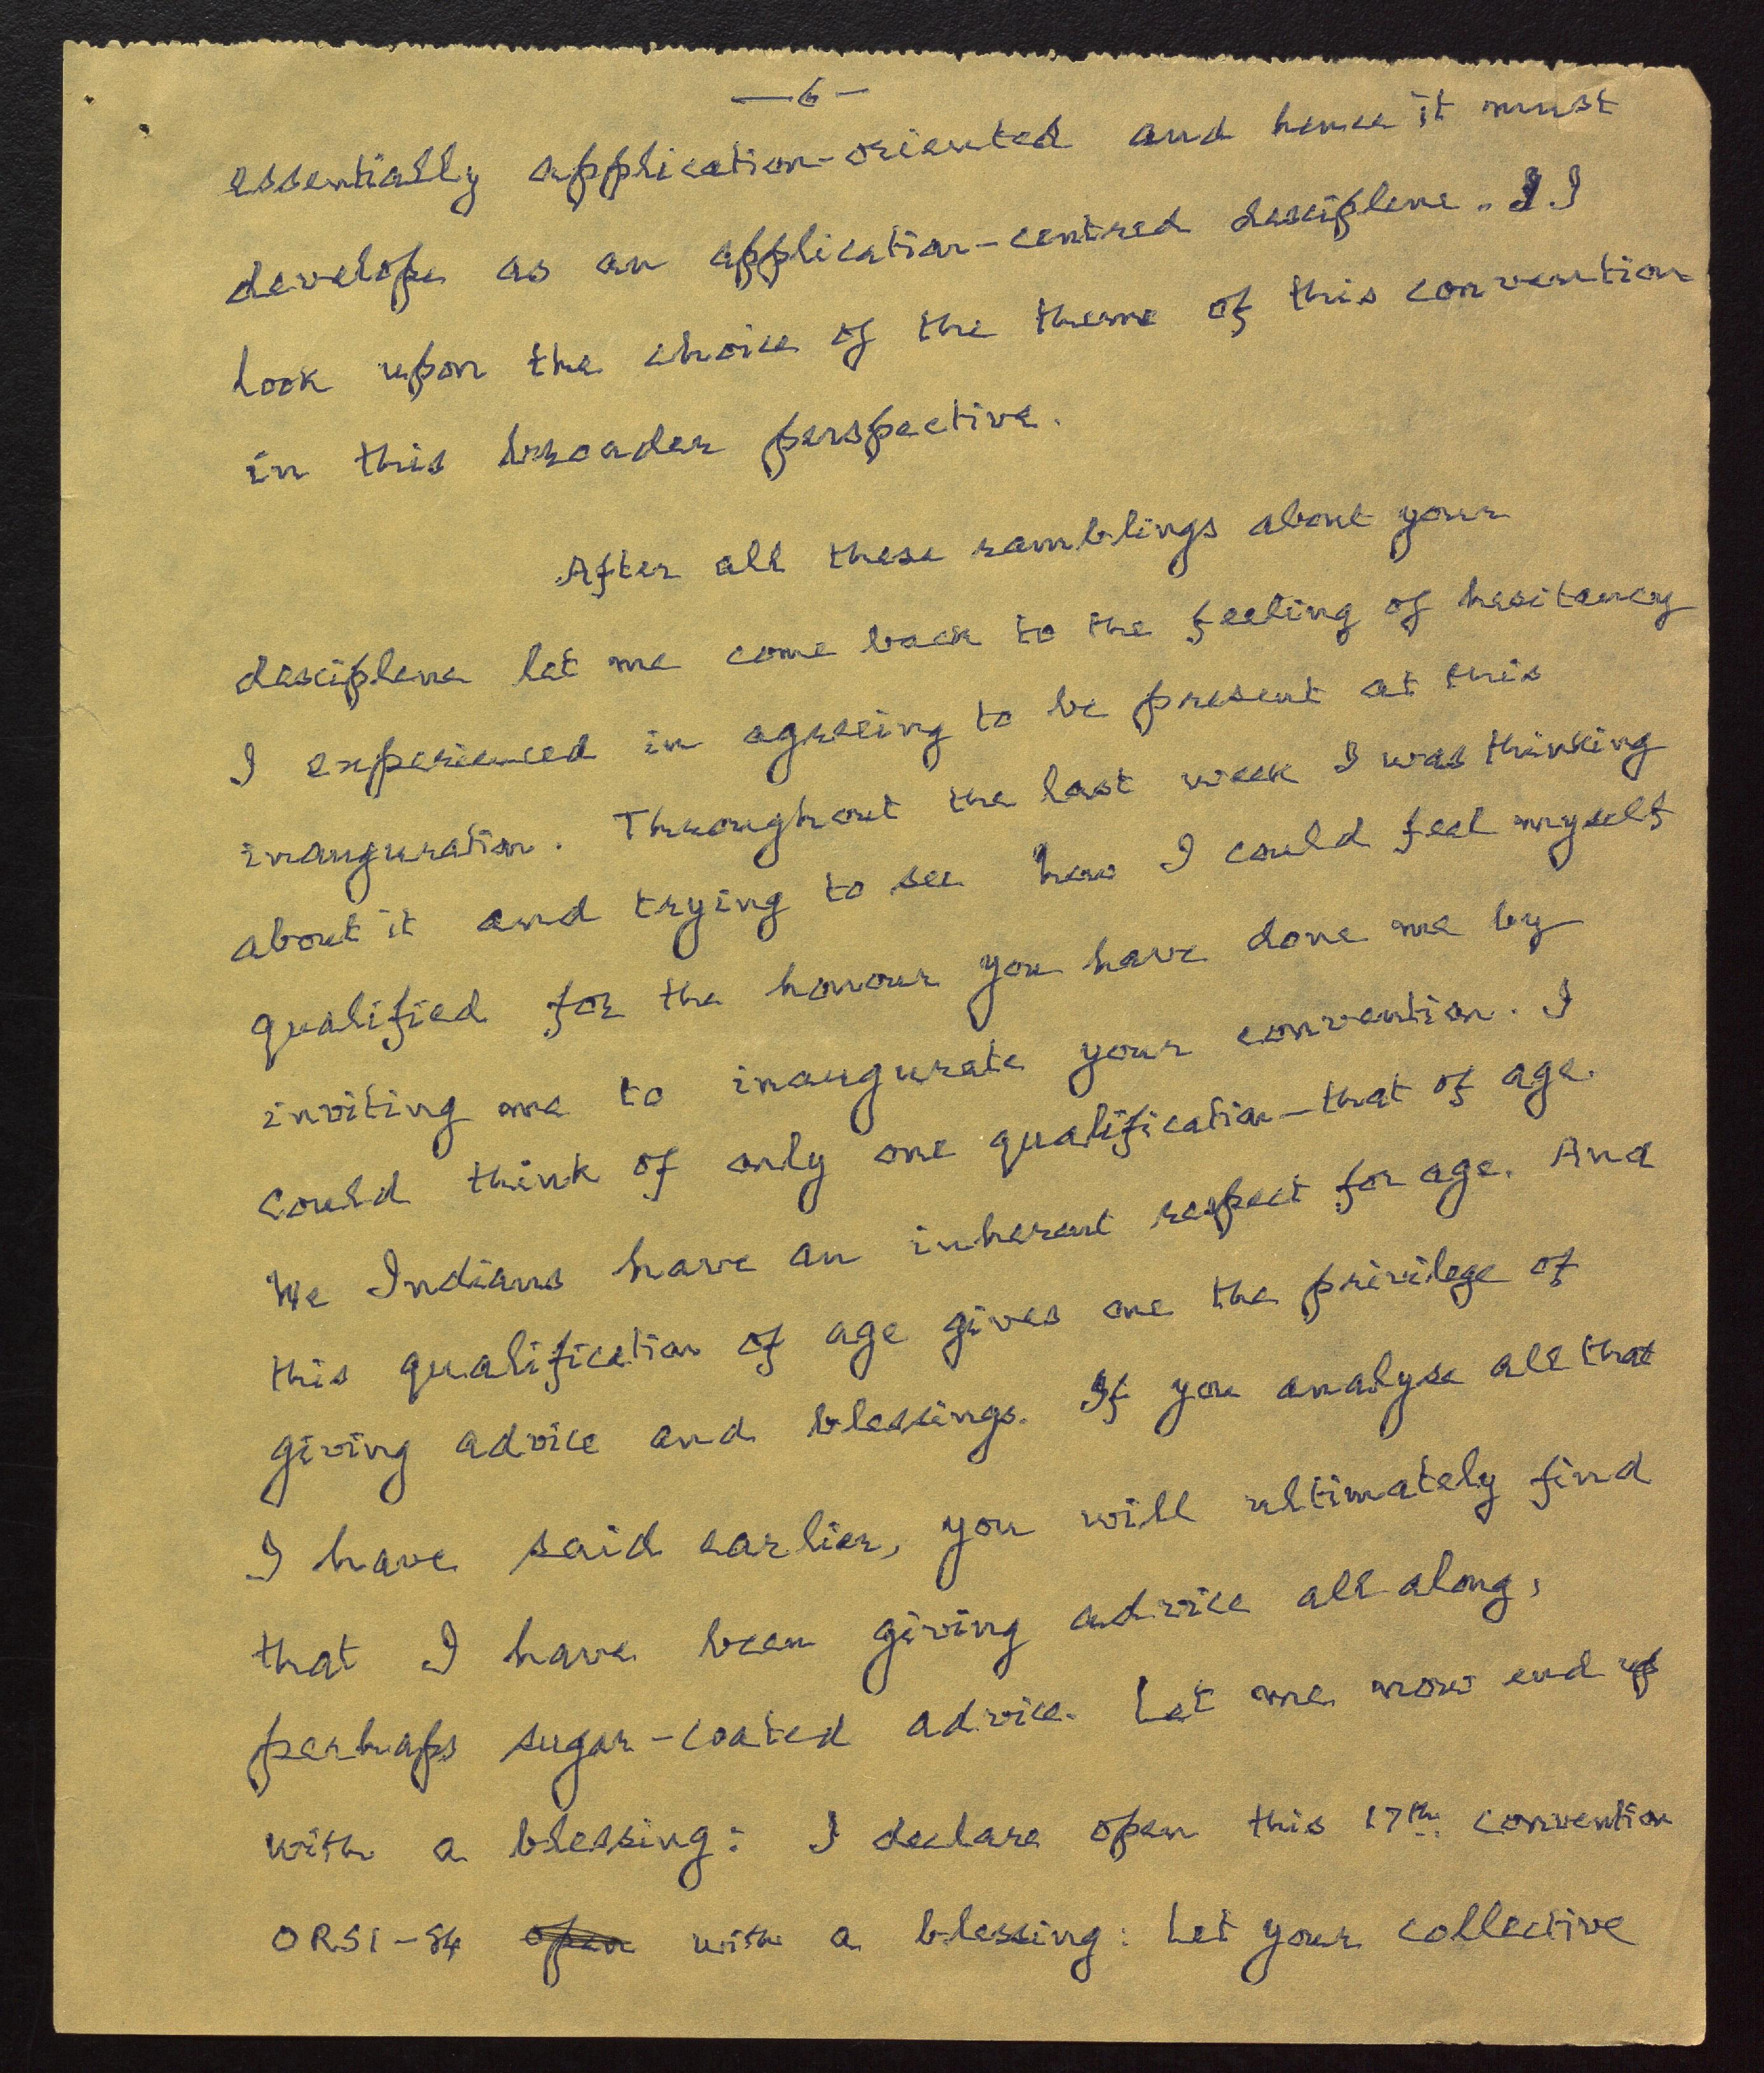 —6—
essentially application-oriented and hence it must
develope as an application-centred desciplene. I
look upon the choice of the theme of this convention
in this broader perspective.
After all these ramblings about your
desciplene let me come back to the feeling of hesitancy
I experienced in agreeing to be present at this
inauguration. Throughout the last week I was thinking
about it and trying to see how I could feel myself
qualified for the honour you have done me by
inviting me to inaugurate your convention. I
could think of only one qualification—that of age.
We Indians have an inherent respect for age. And
this qualification of age gives one the privilege of
giving advice and blessings. If you analyse all that
I have said earlier, you will ultimately find
that I have been giving advice all along,
perhaps sugar-coated advice. Let me now end up
with a blessing: I declare open this 17th convention
ORSI-84 open with a blessing: Let your collective